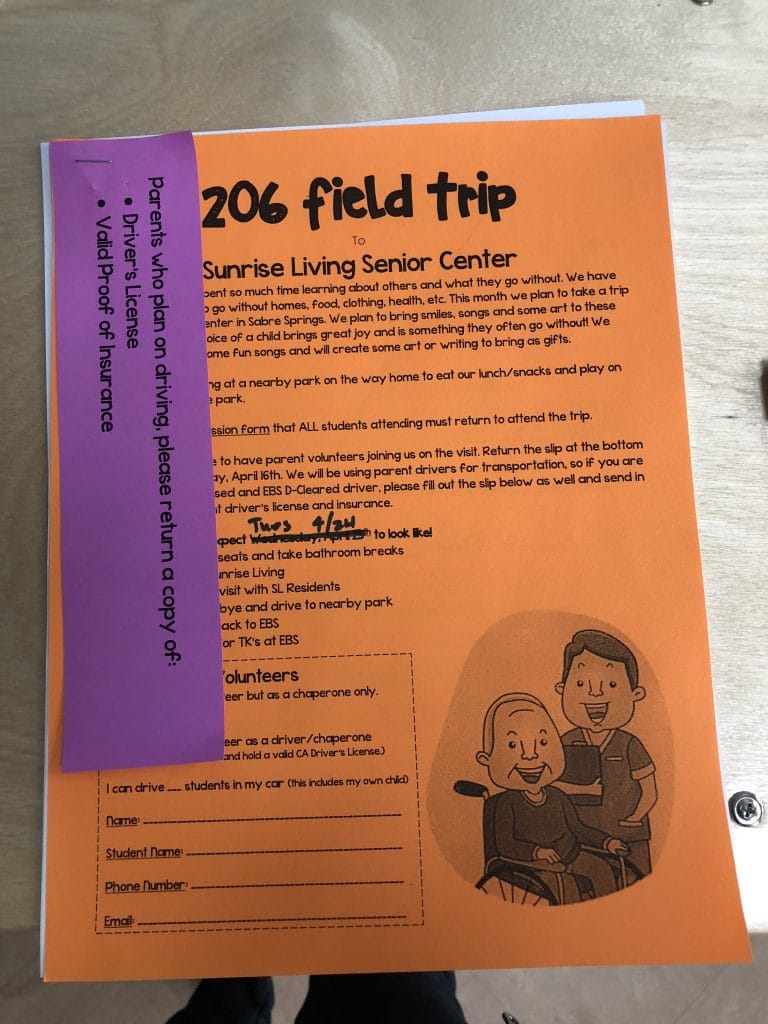 Parents who plan on driving, please return a copy of:
• Driver's License
• Valid Proof of Insurance
206 field trip
To
Sunrise Living Senior Center
ent so much time learning about others and what they go without. We have
go without homes, food, clothing, health, etc. This month we plan to take a trip
enter in Sabre Springs. We plan to bring smiles, songs and some art to these
oice of a child brings great joy and is something they often go without! We
ome fun songs and will create some art or writing to bring as gifts.
ng at a nearby park on the way home to eat our lunch/snacks and play on
park.
ssion form that ALL students attending must return to attend the trip.
e to have parent volunteers joining us on the visit. Return the slip at the bottom
ay, April 16th. We will be using parent drivers for transportation, so if you are
sed and EBS D-Cleared driver, please fill out the slip below as well and send in
t driver's license and insurance.
Tues 4/24
xpect Wednesday, April 25th to look like!
seats and take bathroom breaks
unrise Living
visit with SL Residents
bye and drive to nearby park
ack to EBS
or TK's at EBS
Volunteers
eer but as a chaperone only.
eer as a driver/chaperone
and hold a valid CA Driver's License.)
I can drive ___ students in my car (this includes my own child)
Name:
Student Name:
Phone Number:
Email: